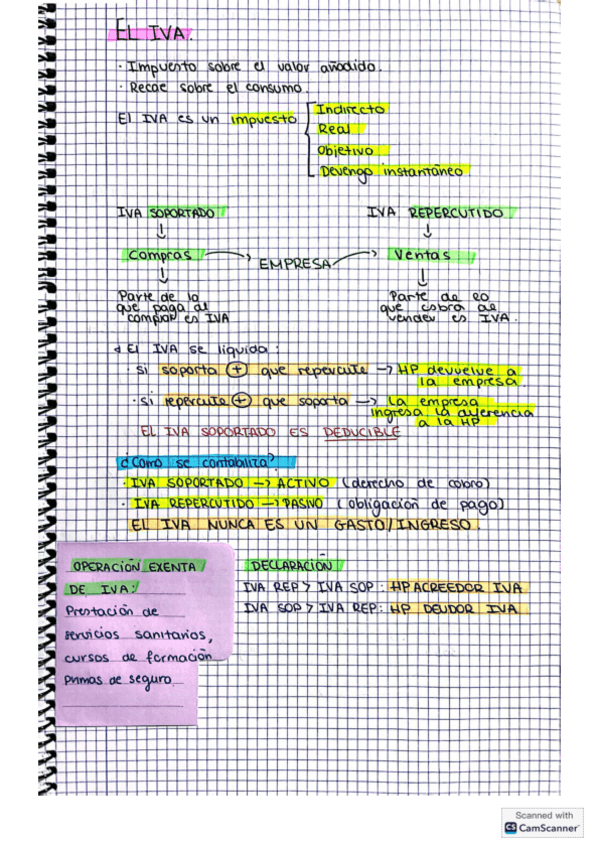 EL IVA.
· Impuesto sobre el valor añadido.
· Recae sobre el consumo.
El IVA es un impuesto
Indirecto
Real
Objetivo
Devengo instantáneo
IVA SOPORTADO
IVA REPERCUTIDO
↓
↓
Compras → EMPRESA → Ventas
↓
↓
Parte de lo
que paga al
comprar es IVA
Parte de lo
que cobra al
vender es IVA.
El IVA se liquida:
· Si soporta (+) que repercute → HP devuelve a
la empresa.
· Si repercute (+) que soporta → La empresa
ingresa la diferencia
a la HP
EL IVA SOPORTADO ES DEDUCIBLE
¿Cómo se contabiliza?
· IVA SOPORTADO → ACTIVO (derecho de cobro)
· IVA REPERCUTIDO → PASIVO (obligación de pago)
EL IVA NUNCA ES UN GASTO/INGRESO.
OPERACIÓN EXENTA
DE IVA:
Prestación de
servicios sanitarios,
cursos de formación
primas de seguro
DECLARACIÓN
IVA REP > IVA SOP: HP ACREEDOR IVA
IVA SOP > IVA REP: HP DEUDOR IVA
Scanned with
CS CamScanner